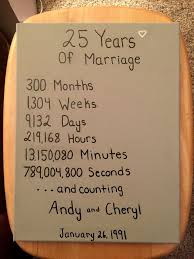 25 Years
Of Marriage
300 Months
1304 Weeks
9132 Days
219,168 Hours
13,150,080 Minutes
789,004,800 Seconds
...and counting
Andy and Cheryl
January 26, 1991